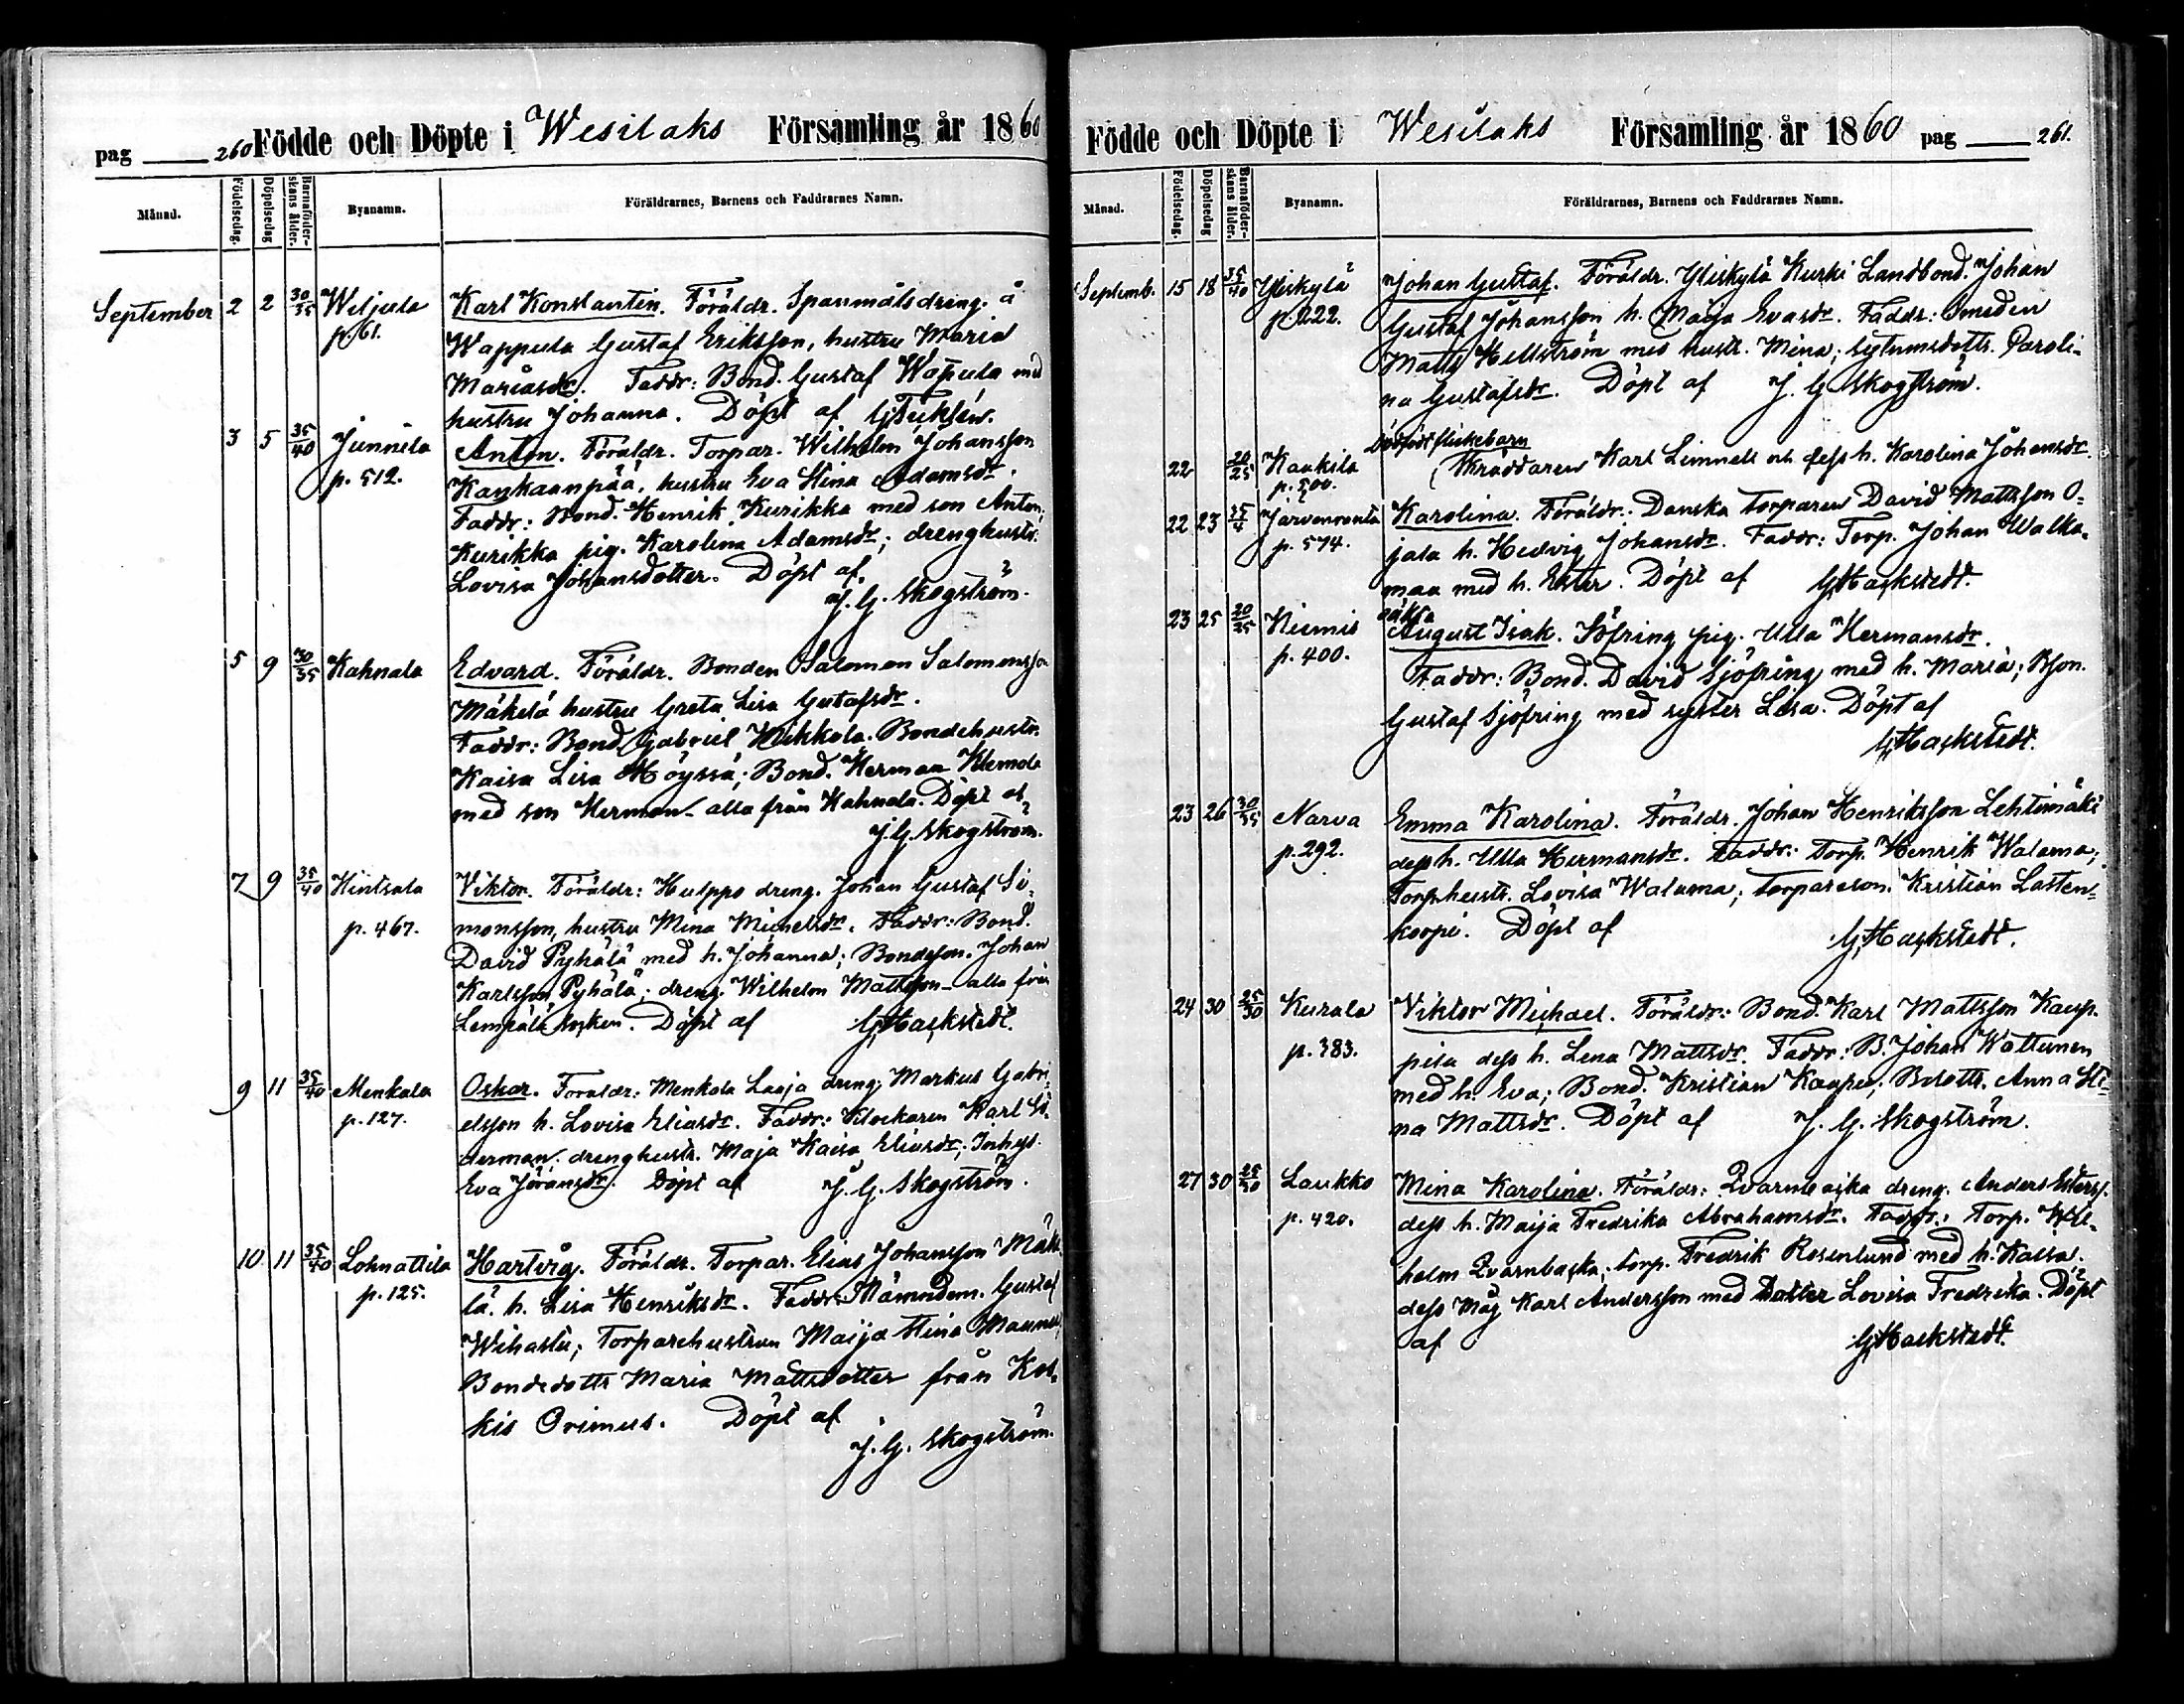 pag 260 Födde och Döpte i Wesilaks Församling år 1860
Månad. Födelsedag. Döpelsedag Barnaföderskans ålder. Byanamn. Föräldrarnes, Barnens och Faddrarnes Namn.
September 2 2 30/35 Wiljula Karl Konstantin. Föräldr. Spanmålsdreng. å
p. 61. Wappula Gustaf Eriksson, hustru Maria
Mariasdr. Faddr: Bond. Gustaf Wapula med
hustru Johanna. Döpt af
3 5 35/40 Junnila Anton. Föräldr. Torpar. Wilhelm Johansson
p. 512. Kankaanpää, hustru Eva Stina Adamsdr.
Faddr: Bond. Henrik Kurikka med son Anton;
Kurikka pig. Karolina Adamsdr; drenghustr.
Lovisa Johansdotter. Döpt af
J. G. Skogström.
5 9 30/35 Kahnala Edvard. Föräldr. Bonden Salomon Salomonsson
Mäkelä hustru Greta Lisa Gustafsdr.
Faddr: Bond. Gabriel Mikkola. Bondehustr.
Kaisa Lisa Höyssä; Bond. Herman Klemola
med son Herman – alla från Kahnala. Döpt af
J. G. Skogström.
7 9 35/40 Hintsala Viktor. Föräldr: Hulppo dreng. Johan Gustaf Si-
p. 467. monsson, hustru Mina Michelsdr. Faddr: Bond.
David Pyhälä med h. Johanna; Bondeson. Johan
Karlsson Pyhälä; dreng. Wilhelm Mattsson – alla från
Lempälä socken. Döpt af G. Hackstedt.
9 11 35/40 Menkala Oskar. Föräldr: Menkala Laaja dreng. Markus Gabri-
p. 127. elsson h. Lovisa Eliasdr. Faddr: Klockaren Karl Sö-
derman. drenghustr. Maja Kaisa Eliasdr; Inhys.
Eva Jöransdr. Döpt af J. G. Skogström.
10 11 35/40 Lohnattila Hartvig. Föräldr. Torpar. Elias Johansson Mäke-
p. 125. lä. h. Lisa Henriksdr. Faddr: Nämndem. Gustaf
Wihastu; Torparehustrun Maija Stina Maunu;
Bondedottr Maria Mattsdotter från Kos-
kis Orimus. Döpt af
J. G. Skogström.
Födde och Döpte i Wesilaks Församling år 1860 pag 261.
Månad. Födelsedag. Döpelsedag Barnaföderskans ålder. Byanamn. Föräldrarnes, Barnens och Faddrarnes Namn.
Septemb. 15 18 35/40 Yliskylä Johan Gustaf. Föräldr. Yliskylä Kurki Landbond. Johan
p. 222. Gustaf Johansson h. Maija Evasdr. Faddr: Smeden
Matts Hellström med hustr. Mina; sytnmsdottr. Caroli-
na Gustafsdr. Döpt af J. G. Skogström.
dödfödt flickebarn
22 20/25 Kaakila Skräddaren Karl Limnell och dess h. Karolina Johansdr.
p. 500.
22 23 Jarvenranta Karolina. Föräldr: Danska torparen David Mattsson O-
p. 574. jala h. Hedvig Johansdr. Faddr: Torp. Johan Walka-
maa med h. Ester. Döpt af G. Hackstedt.
oäkta
23 25 20/25 Niemis August Isak. Söfring pig. Ulla Hermansdr.
p. 400. Faddr: Bond. David Sjöfring med h. Maria; Bson.
Gustaf Sjöfring med syster Lisa. Döpt af
G. Hackstedt.
23 26 30/35 Narva Emma Karolina. Föräldr. Johan Henriksson Lehtimäki
p. 292. dess h. Ulla Hermansdr. Faddr: Torp. Henrik Walama;
Torphustr. Lovisa Walama; torpareson. Kristian Lasten-
korpi. Döpt af G. Hackstedt.
24 30 25/30 Kurala Viktor Michael. Föräldr: Bond. Karl Mattsson Kaup-
p. 383. pila dess h. Lena Mattsdr. Faddr: B. Johan Wattunen
med h. Eva; Bond. Kristian Kauppi; Bdottr. Anna Sti-
na Mattsdr. Döpt af J. G. Skogström.
27 30 25/30 Laukko Mina Karolina. Föräldr: Qvarnbacka dreng. Anders Esterss.
p. 420. dess h. Maija Fredrika Abrahamsdr. Faddr: Torp. Wil-
helm Qvarnbacka; torp. Fredrik Rosenlund med h. Kaisa.
dess måg Karl Andersson med Dotter Lovisa Fredrika. Döpt
af G. Hackstedt.